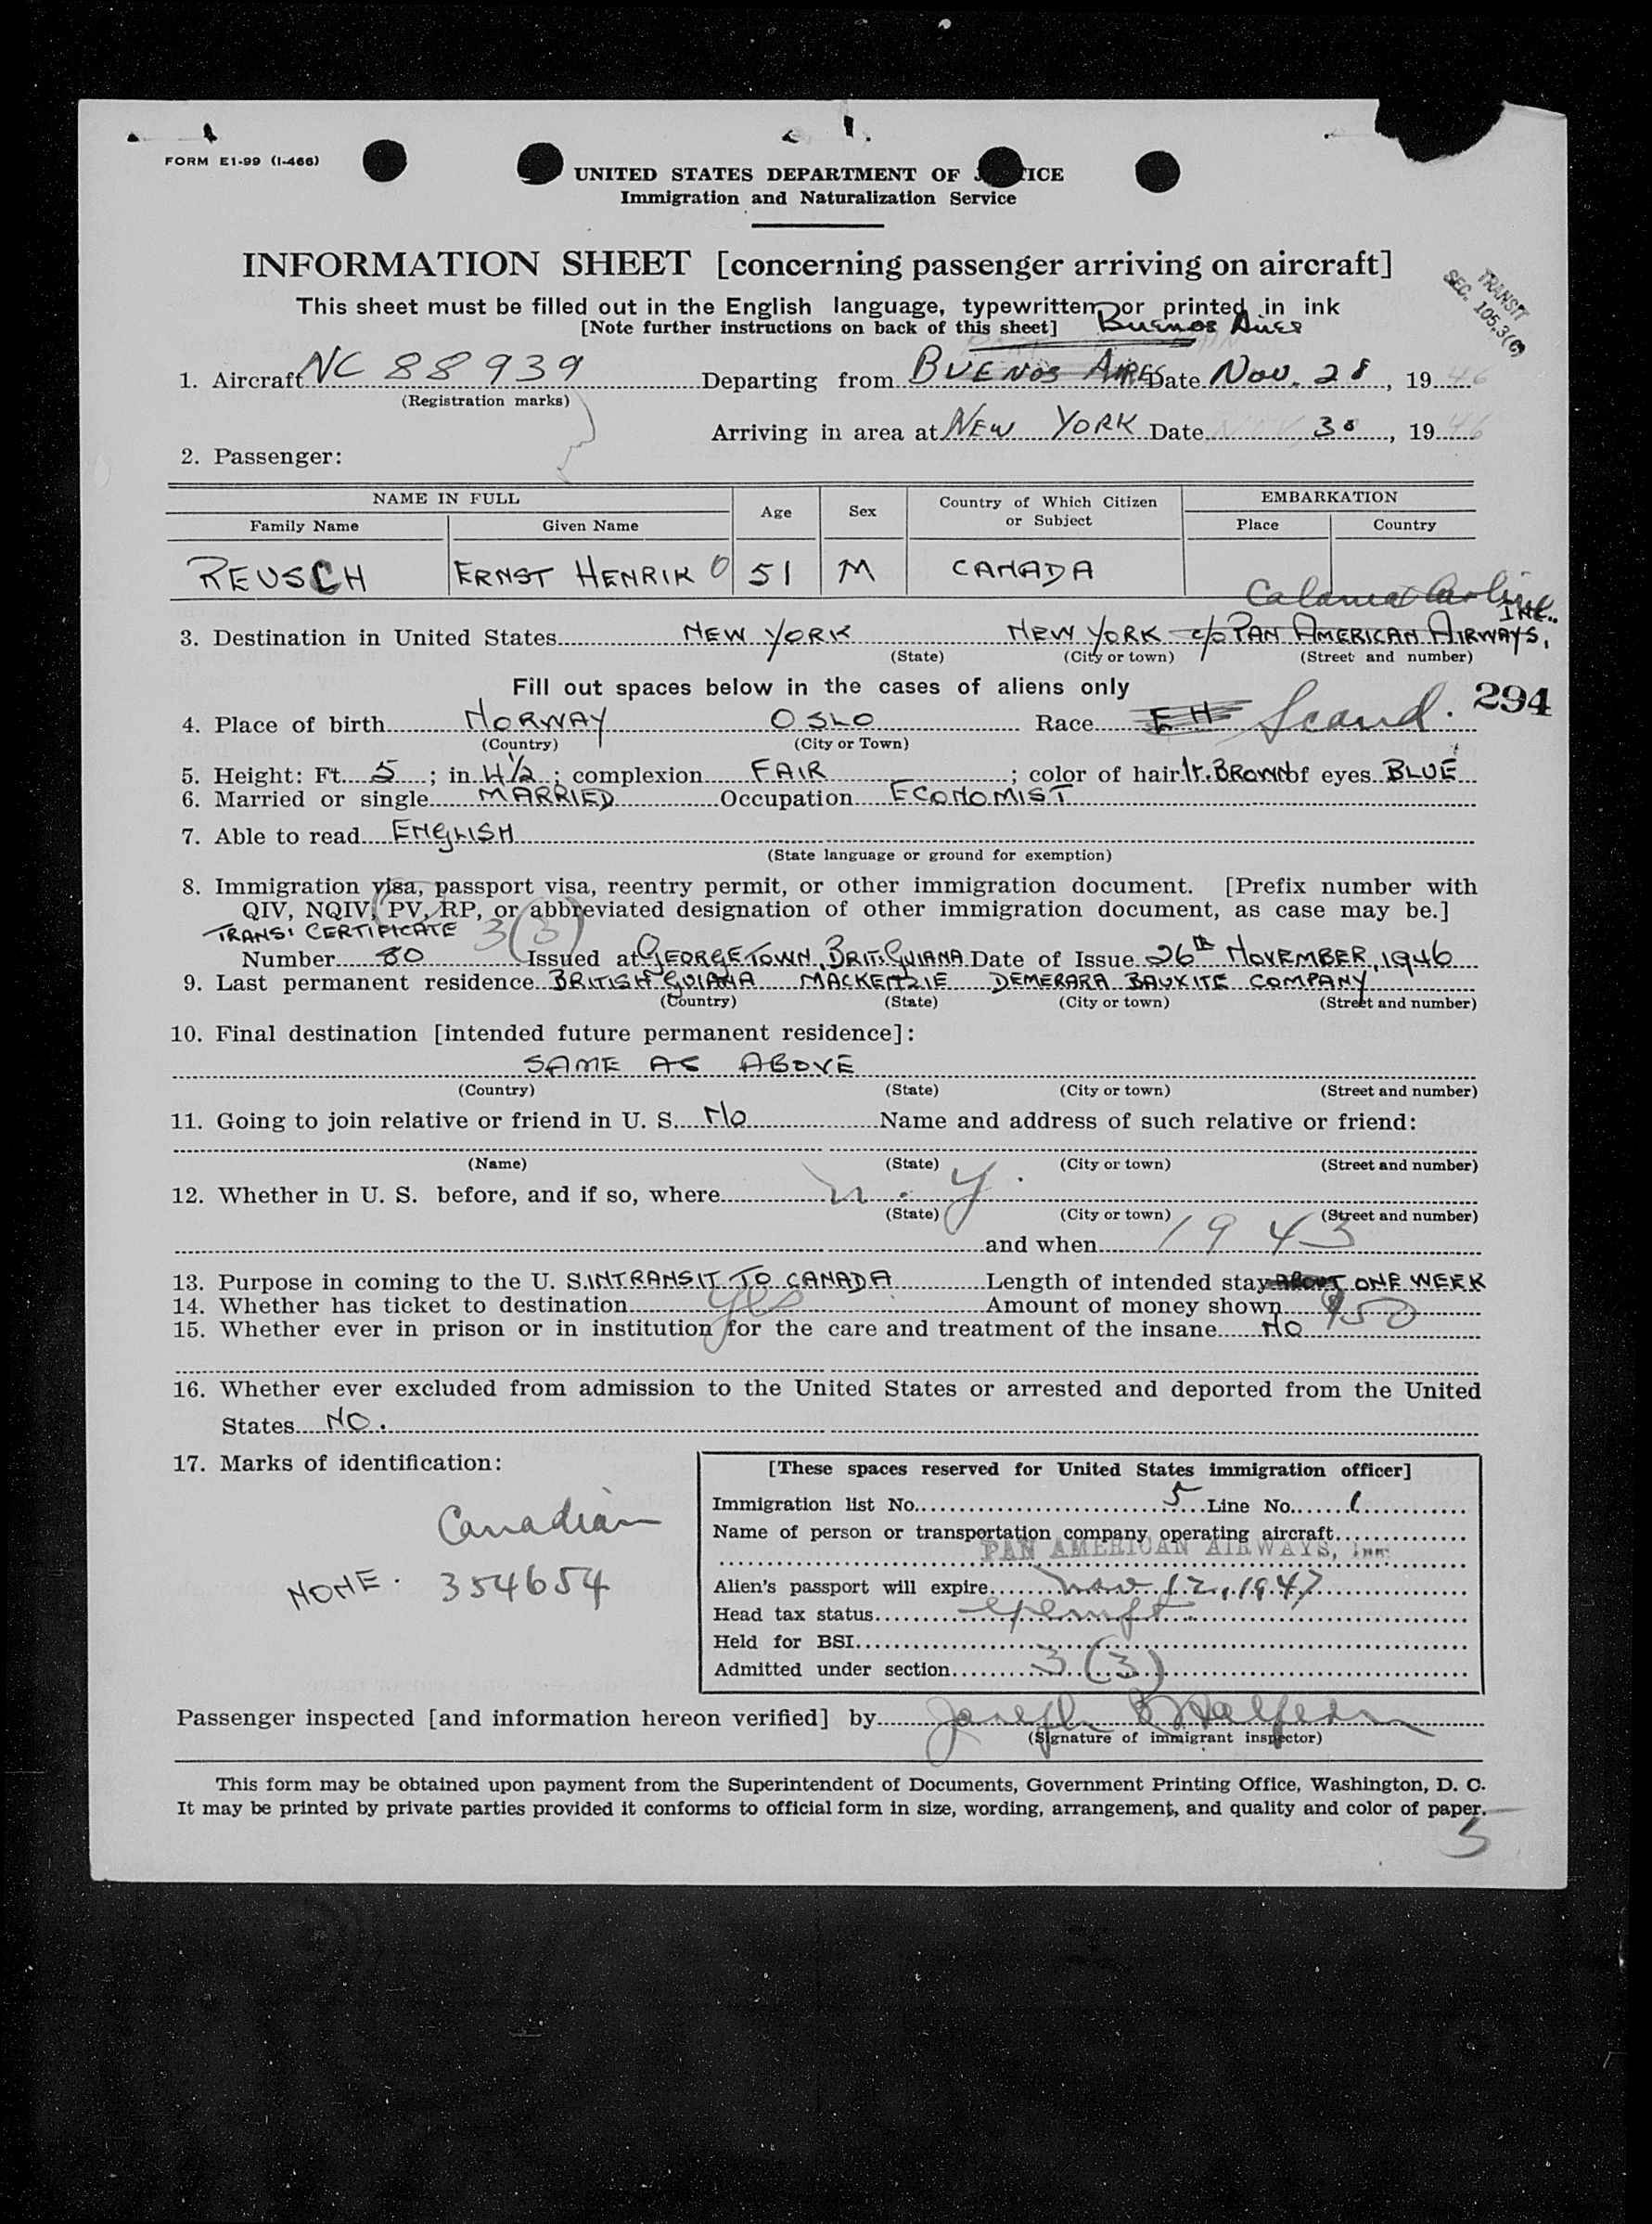 FORM E1-99 (I-466)
UNITED STATES DEPARTMENT OF J TICE
Immigration and Naturalization Service
INFORMATION SHEET [concerning passenger arriving on aircraft]
TRANSIT
SEC. 105.3(c)
This sheet must be filled out in the English language, typewritten or printed in ink
[Note further instructions on back of this sheet] Buenos Aires
1. Aircraft NC 88939 Departing from BUENOS AIRES Date Nov. 28, 1946
(Registration marks)
Arriving in area at NEW YORK Date NOV 30, 1946
2. Passenger:
NAME IN FULL Age Sex Country of Which Citizen or Subject EMBARKATION
Family Name Given Name Place Country
REUSCH ERNST HENRIK O 51 M CANADA
INC.
3. Destination in United States NEW YORK NEW YORK c/o PAN AMERICAN AIRWAYS,
(State) (City or town) (Street and number)
Fill out spaces below in the cases of aliens only
294
4. Place of birth NORWAY OSLO Race Scand.
(Country) (City or Town)
5. Height: Ft. 5; in. 4½; complexion FAIR; color of hair lt. BROWN of eyes BLUE
6. Married or single MARRIED Occupation ECONOMIST
7. Able to read ENGLISH
(State language or ground for exemption)
8. Immigration visa, passport visa, reentry permit, or other immigration document. [Prefix number with
QIV, NQIV, PV, RP, or abbreviated designation of other immigration document, as case may be.]
TRANSI CERTIFICATE 3(3)
Number 80 Issued at GEORGETOWN, BRIT. GUIANA Date of Issue 26th NOVEMBER, 1946
9. Last permanent residence BRITISH GUIANA MACKENZIE DEMERARA BAUXITE COMPANY
(Country) (State) (City or town) (Street and number)
10. Final destination [intended future permanent residence]:
SAME AS ABOVE
(Country) (State) (City or town) (Street and number)
11. Going to join relative or friend in U. S. NO Name and address of such relative or friend:
(Name) (State) (City or town) (Street and number)
12. Whether in U. S. before, and if so, where n. y.
(State) (City or town) (Street and number)
and when 1943
13. Purpose in coming to the U. S. INTRANSIT TO CANADA Length of intended stay ABOUT ONE WEEK
14. Whether has ticket to destination yes Amount of money shown $150
15. Whether ever in prison or in institution for the care and treatment of the insane NO
16. Whether ever excluded from admission to the United States or arrested and deported from the United
States NO.
17. Marks of identification:
Canadian
NONE. 354654
[These spaces reserved for United States immigration officer]
Immigration list No. 5 Line No. 1
Name of person or transportation company operating aircraft
PAN AMERICAN AIRWAYS, Inc.
Alien's passport will expire Nov 12, 1947
Head tax status exempt
Held for BSI
Admitted under section 3(3)
Passenger inspected [and information hereon verified] by Joseph B Halpern
(Signature of immigrant inspector)
This form may be obtained upon payment from the Superintendent of Documents, Government Printing Office, Washington, D. C.
It may be printed by private parties provided it conforms to official form in size, wording, arrangement, and quality and color of paper.
5